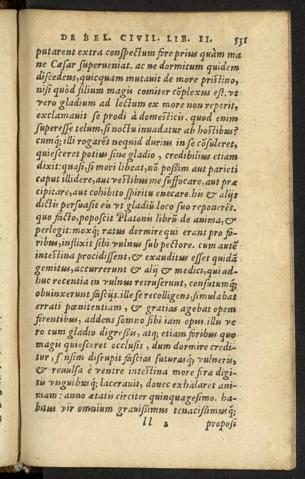 DE BEL. CIVIL. LIB. II. 531
putarent extra conspectum fore prius quàm ma
ne Cæsar superueniat. ac ne dormitum quidem
discedens, quicquam mutauit de more pristino,
nisi quòd filium magis comiter cõplexus est. vt
vero gladium ad lectum ex more non reperit,
exclamauit se prodi à domesticis. quod enim
superesse telum, si noctu inuadatur ab hostibus?
cumq; illi rogarẽt nequid durius in se cõsuleret,
quiesceret potius sine gladio, credibilius etiam
dixit: quasi, si mori libeat, nõ possim aut parieti
caput illidere, aut vestibus me suffocare, aut præ
cipitare, aut cohibito spiritu enecare. his & alijs
dictis persuasit eis vt gladiũ loco suo reponerẽt.
quo facto, poposcit Platonis librũ de anima, &
perlegit: moxq; ratus dormire qui erant pro fo-
ribus, inflixit sibi vulnus sub pectore. cum autẽ
intestina procidissent, & exauditus esset quidã
gemitus, accurrerunt & alij & medici, qui ad-
huc recentia in vulnus retruserunt, consutumq;
obuinxerunt fascijs. ille se recolligens, simulabat
errati pœnitentiam, & gratias agebat opem
ferentibus, addens somno sibi iam opus. illi ve
ro cum gladio digressi, atq; etiam foribus quo
magis quiesceret occlusis, dum dormire credi-
tur, ipsum disrupit fascias suturasq; vulneris,
& reuulsa è ventre intestina more feræ digi-
tis vnguibusq; lacerauit, donec exhalaret ani-
mam: anno ætatis circiter quinquagesimo. ha-
bitus vir omnium grauissimus tenacissimusq;
ll 2 proposi